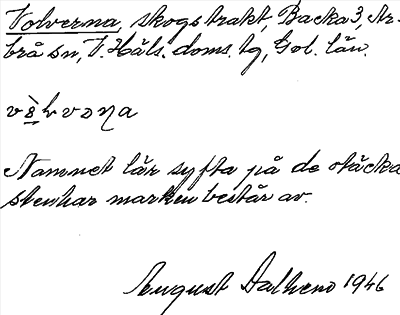 Volverna, skogstrakt, Backa 3, Ar-
brå sn, V. Häls. doms. tg, Gbl. län.
Namnet lär syfta på de otäcka
stenhar marken består av.
August Dalheno 1946